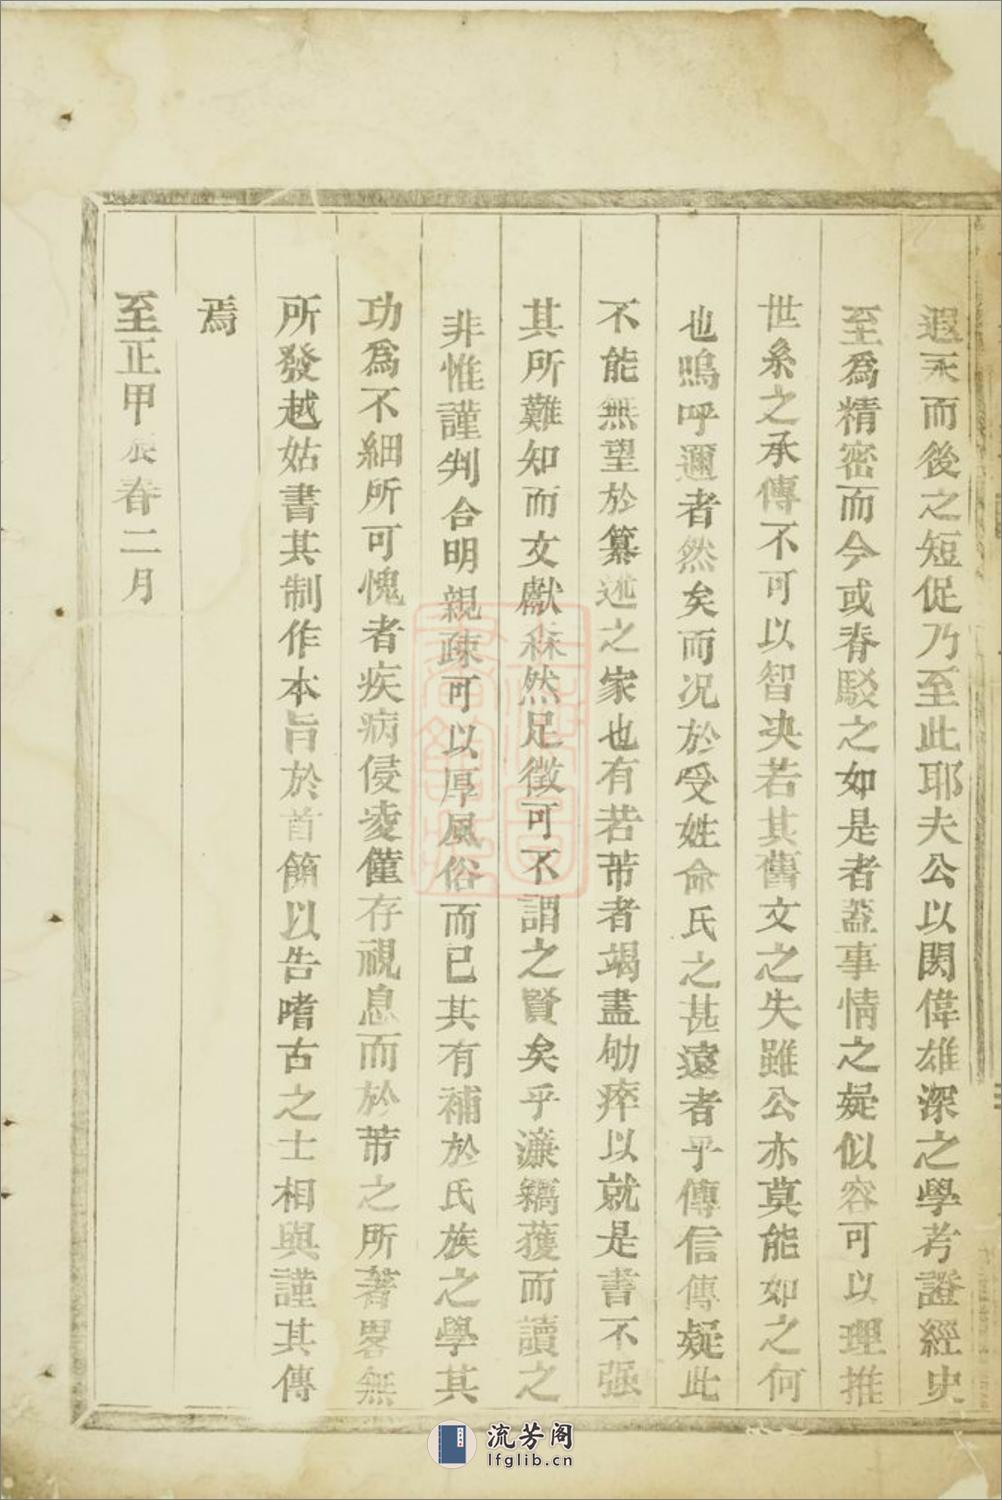 遐天而後之短促乃至此耶夫公以閎偉雄深之學考證經史
至為精密而今或舂駁之如是者蓋事情之疑似容可以理推
世系之承傳不可以智决若其舊文之失雖公亦莫能如之何
也嗚呼邇者然矣而况於受姓命氏之甚遠者乎傳信傳疑此
不能無望於纂述之家也有若芾者竭盡劬瘁以就是書不强
其所難知而文獻森然足徵可不謂之賢矣乎濂竊獲而讀之
非惟謹判合明親疎可以厚風俗而已其有補於氏族之學其
功爲不細所可愧者疾病侵凌僅存視息而於芾之所著畧無
所發越姑書其制作本旨於首簡以告嗜古之士相與謹其傳
焉
至正甲辰春二月
流芳阁
lfglib.cn